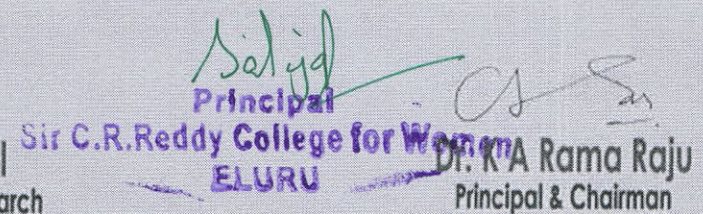 Principal
Sir C.R.Reddy College for Women
ELURU
Dr. K A Rama Raju
Principal & Chairman
arch